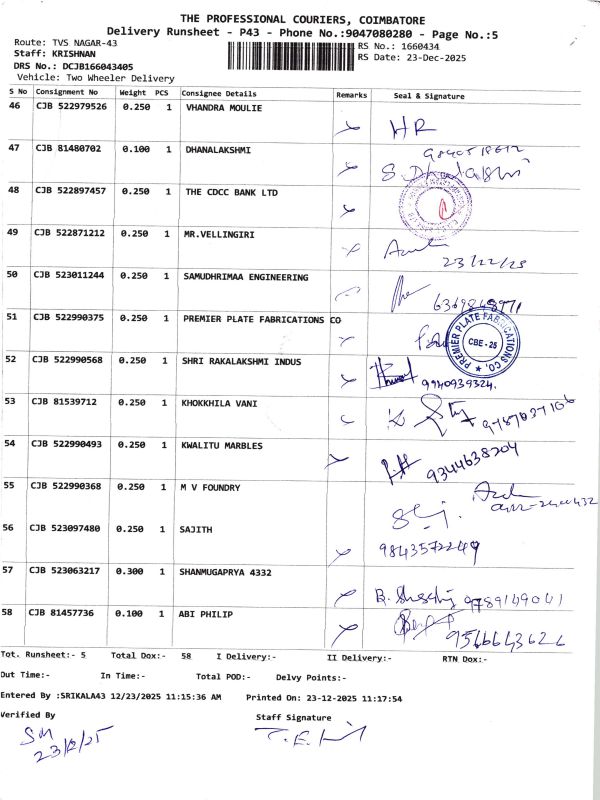 THE PROFESSIONAL COURIERS, COIMBATORE
Delivery Runsheet - P43 - Phone No.:9047080280 - Page No.:5
Route: TVS NAGAR-43
Staff: KRISHNAN
DRS No.: DCJB166043405
Vehicle: Two Wheeler Delivery
RS No.: 1660434
RS Date: 23-Dec-2025
S No Consignment No Weight PCS Consignee Details Remarks Seal & Signature
46 CJB 522979526 0.250 1 VHANDRA MOULIE HR
47 CJB 81480702 0.100 1 DHANALAKSHMI
48 CJB 522897457 0.250 1 THE CDCC BANK LTD
49 CJB 522871212 0.250 1 MR.VELLINGIRI
50 CJB 523011244 0.250 1 SAMUDHRIMAA ENGINEERING
51 CJB 522990375 0.250 1 PREMIER PLATE FABRICATIONS CO
PREMIER PLATE FABRICATIONS CO,
CBE - 25
52 CJB 522990568 0.250 1 SHRI RAKALAKSHMI INDUS 9940939324.
53 CJB 81539712 0.250 1 KHOKKHILA VANI
54 CJB 522990493 0.250 1 KWALITU MARBLES 9344638204
55 CJB 522990368 0.250 1 M V FOUNDRY
56 CJB 523097480 0.250 1 SAJITH 9843572249
57 CJB 523063217 0.300 1 SHANMUGAPRYA 4332 9789149041
58 CJB 81457736 0.100 1 ABI PHILIP 9566643626
Tot. Runsheet:- 5 Total Dox:- 58 I Delivery:- II Delivery:- RTN Dox:-
Out Time:- In Time:- Total POD:- Delvy Points:-
Entered By :SRIKALA43 12/23/2025 11:15:36 AM Printed On: 23-12-2025 11:17:54
Verified By Staff Signature
23/12/25